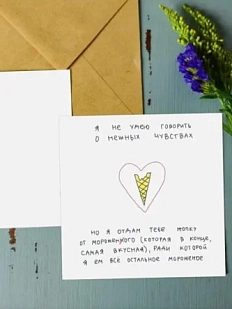 Я НЕ УМЕЮ ГОВОРИТЬ
О НЕЖНЫХ ЧУВСТВАХ
НО Я ОТДАМ ТЕБЕ ПОПКУ
ОТ МОРОЖЕНКОГО (КОТОРАЯ В КОНЦЕ,
САМАЯ ВКУСНАЯ), РАДИ КОТОРОЙ
Я ЕМ ВСЁ ОСТАЛЬНОЕ МОРОЖЕНОЕ